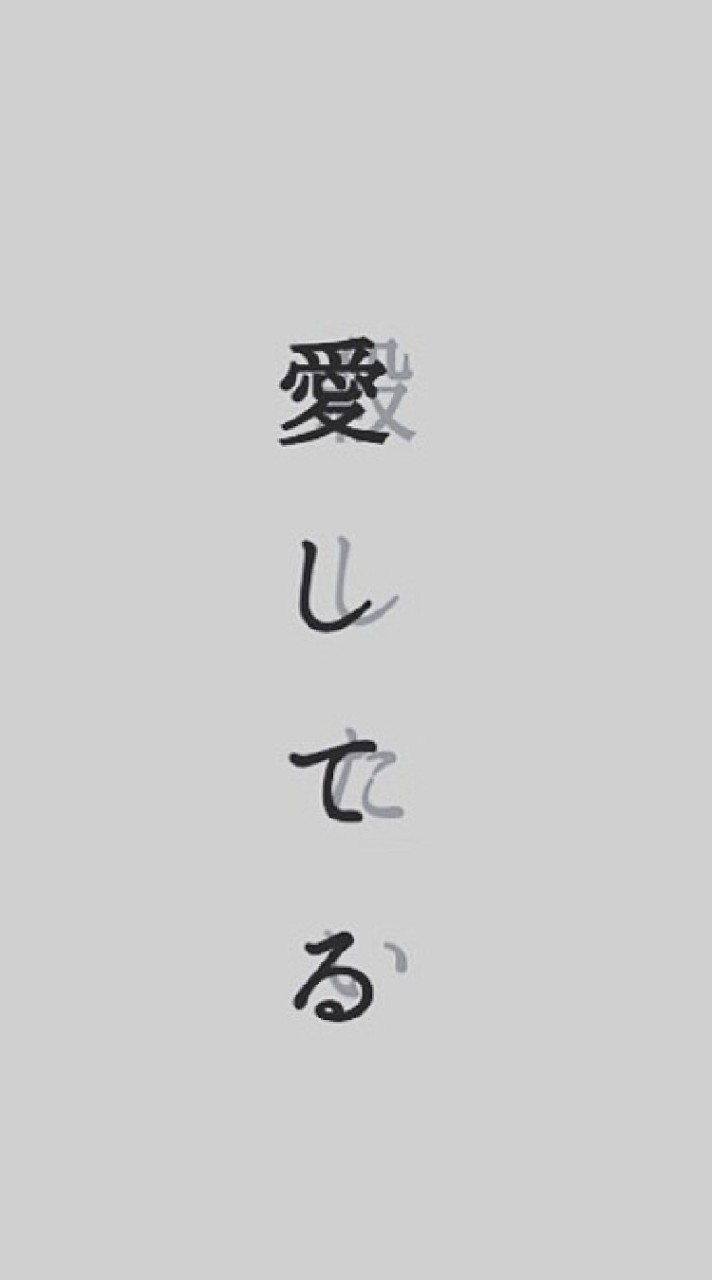 愛してる
殺したい